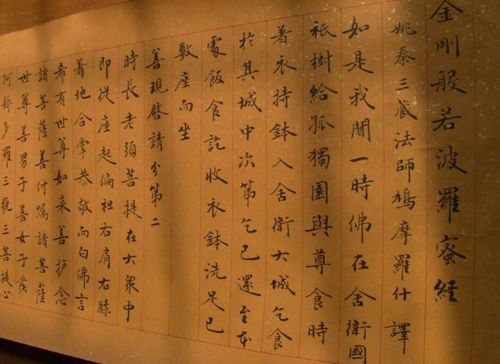 金剛般若波羅蜜經
姚秦三藏法師鳩摩羅什譯
如是我聞一時佛在舍衛國
祇樹給孤獨園與尊食時
着衣持鉢入舍衛大城乞食
於其城中次第乞已還至本
處飯食訖收衣鉢洗足已
敷座而坐
善現啓請分第二
時長老須菩提在大眾中
即從座起偏袒右肩右膝
着地合掌恭敬而白佛言
希有世尊如来善护念
諸菩薩善付囑諸菩薩
世尊善男子善女子發
阿耨多羅三藐三菩提心